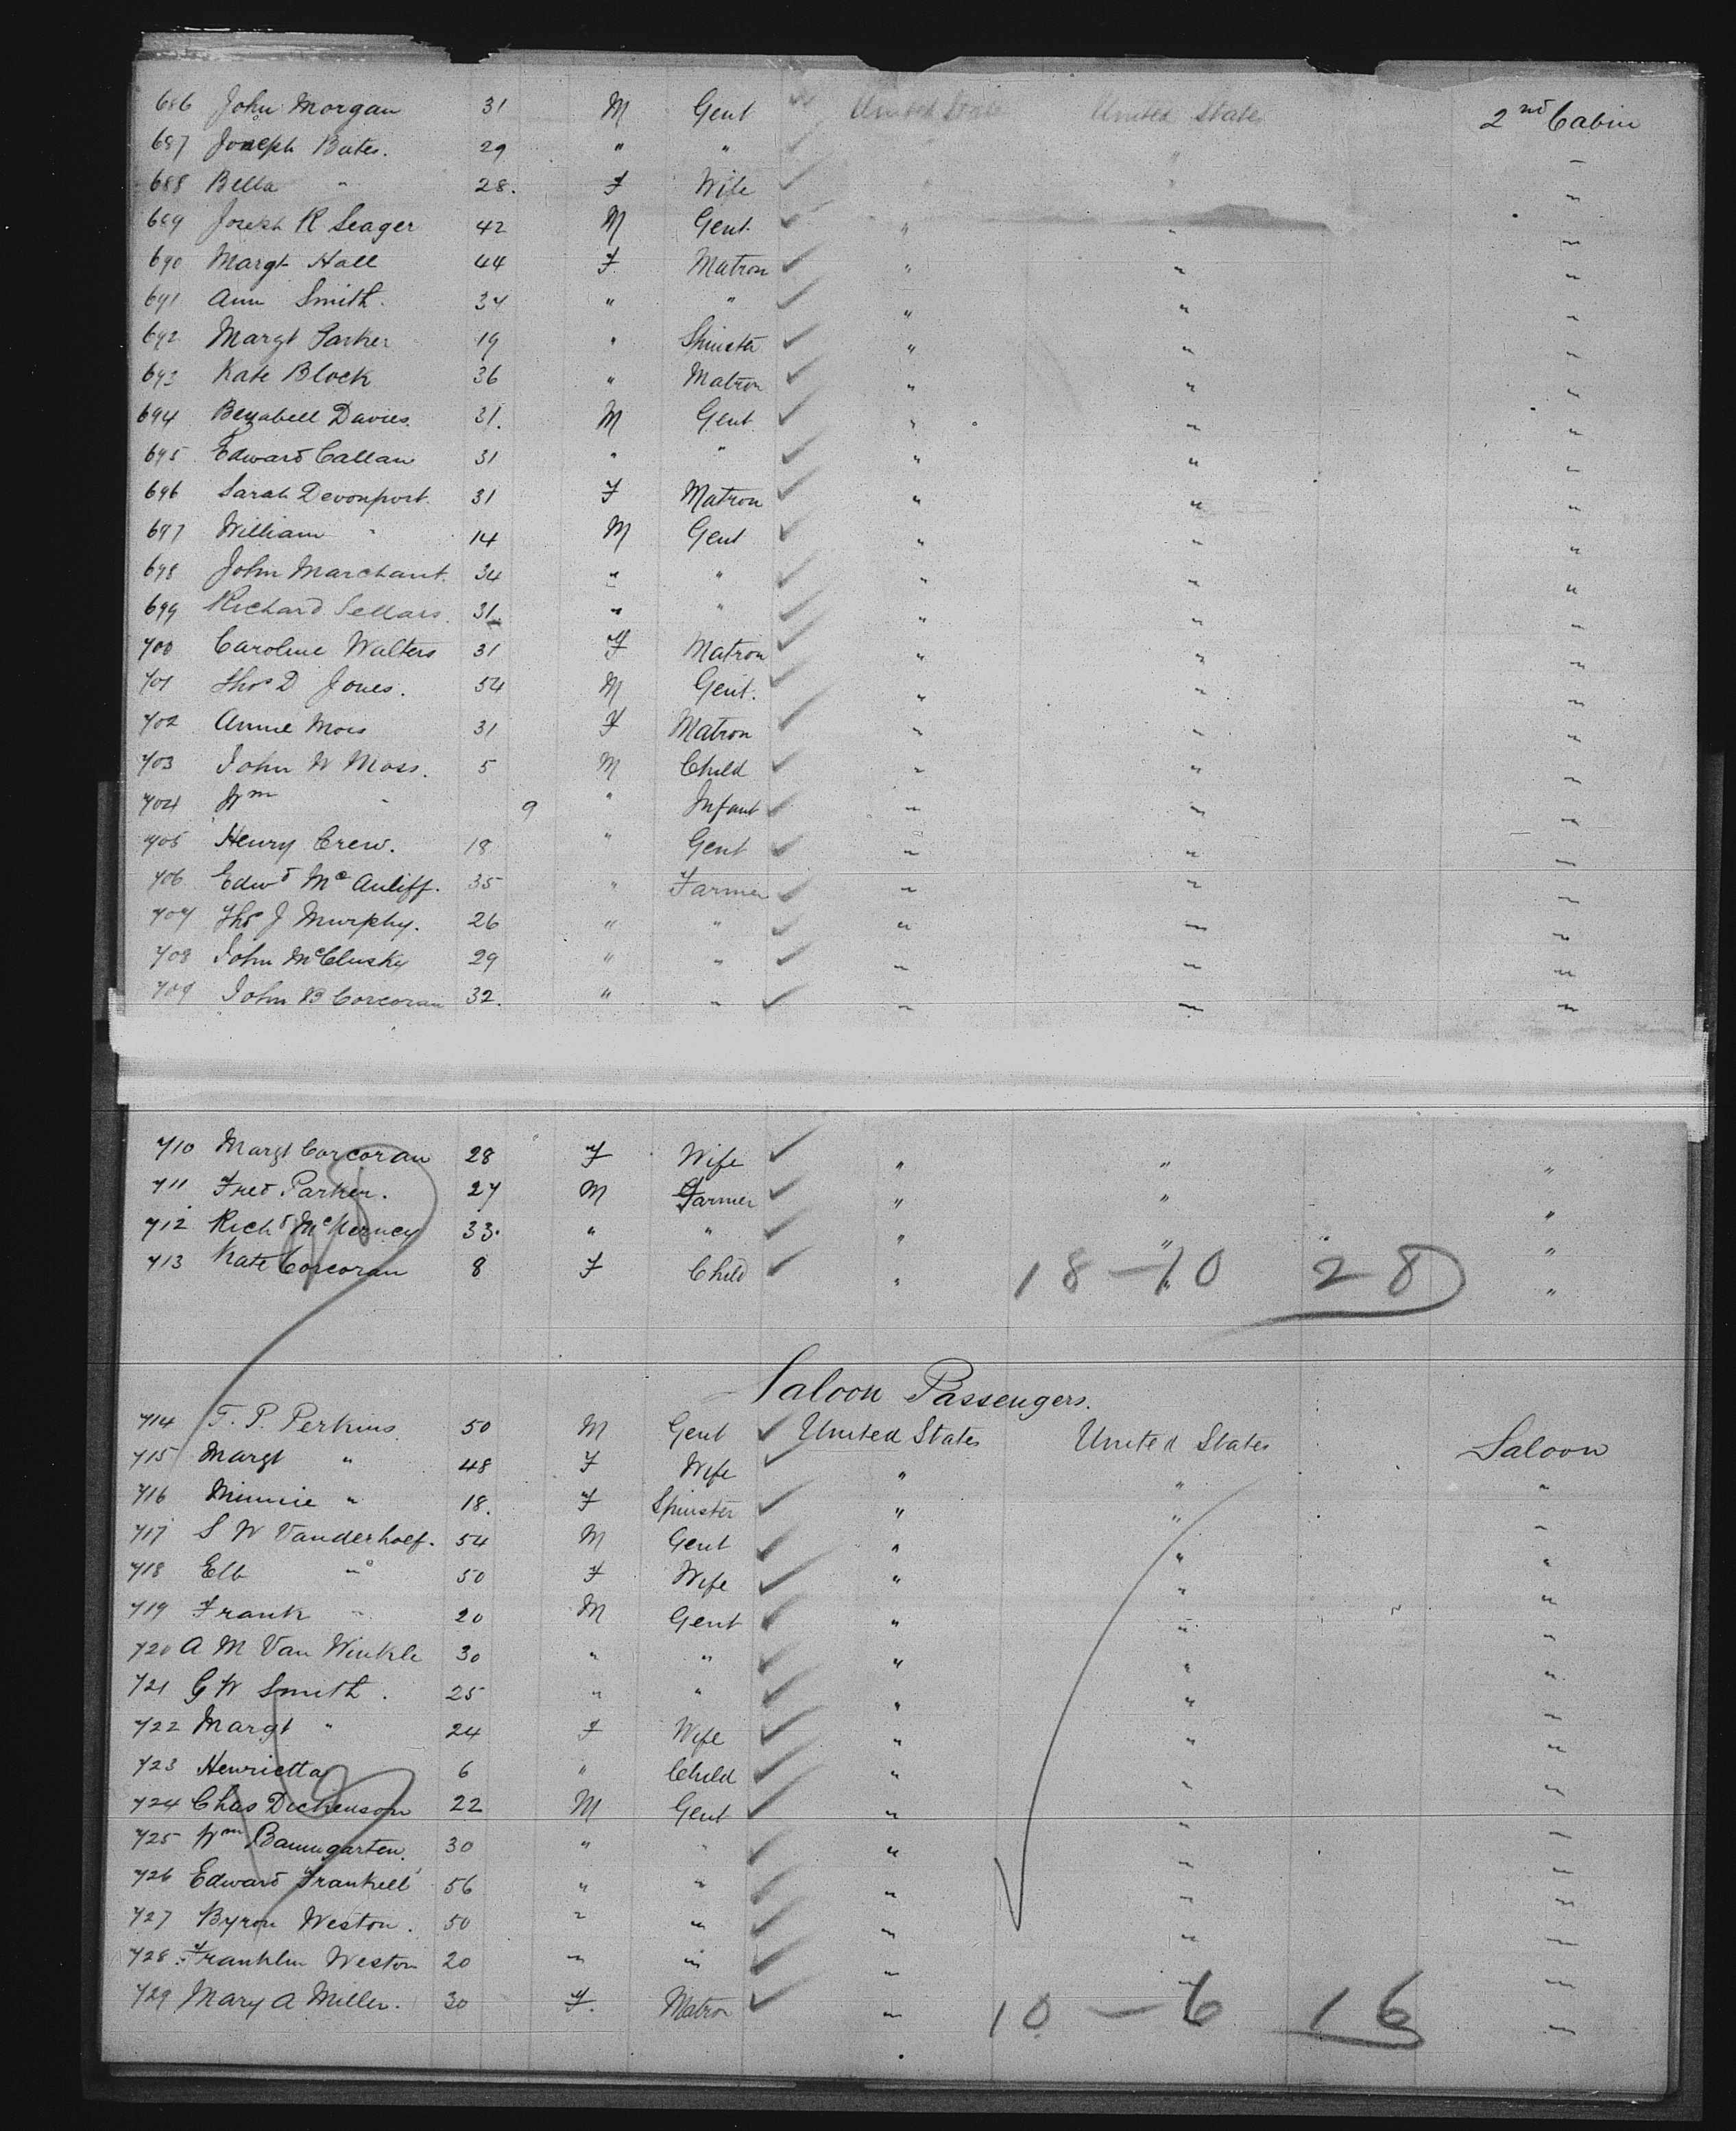 686 John Morgan 31 M Gent United States United States 2nd Cabin
687 Joseph Bates. 29 " " " "
688 Bella " 28. F Wife " " "
689 Joseph R Seager 42 M Gent " " "
690 Margt Hall 44 F Matron " " "
691 Ann Smith. 34 " " " " "
692 Margt Parker 19 " Spinster " " "
693 Kate Block 36 " Matron " " "
694 Davies. 31. M Gent " " "
695 Edward Callan 31 " " " " "
696 Sarah Devonport. 31 F Matron " " "
697 William " 14 M Gent " " "
698 John Marchant. 34 " " " " "
699 Richard Sellars. 31 " " " " "
700 Caroline Walters 31 F Matron " " "
701 Thos D Jones. 54 M Gent. " " "
702 Annie Moss 31 F Matron " " "
703 John W Moss. 5 M Child " " "
704 Wm " 9 " Infant " " "
705 Henry Crew. 18 " Gent " " "
706 Edwd McAuliff. 35 " Farmer " " "
707 Thos J Murphy. 26 " " " " "
708 John McClusky 29 " " " " "
709 John B Corcoran 32. " " " " "
710 Margt Corcoran 28 F Wife " " "
711 Fred Parker. 27 M Farmer " " "
712 Richd McKerney 33. " " " " "
713 Kate Corcoran 8 F Child " " "
18 - 10 28
Saloon Passengers.
714 T. P. Perkins 50 M Gent United States United States Saloon
715 Margt " 48 F Wife " " "
716 Minnie " 18. F Spinster " " "
717 S W Vanderhoef. 54 M Gent " " "
718 " 50 F Wife " " "
719 Frank " 20 M Gent " " "
720 A M Van Winkle 30 " " " " "
721 G W Smith. 25 " " " " "
722 Margt " 24 F Wife " " "
723 Henrietta 6 " Child " " "
724 Chas Dickenson 22 M Gent " " "
725 Wm Baumgarten. 30 " " " " "
726 Edward Frankell 56 " " " " "
727 Byron Weston. 50 " " " " "
728 Franklin Weston 20 " " " " "
729 Mary A Miller. 30 F. Matron " " "
10 - 6 16